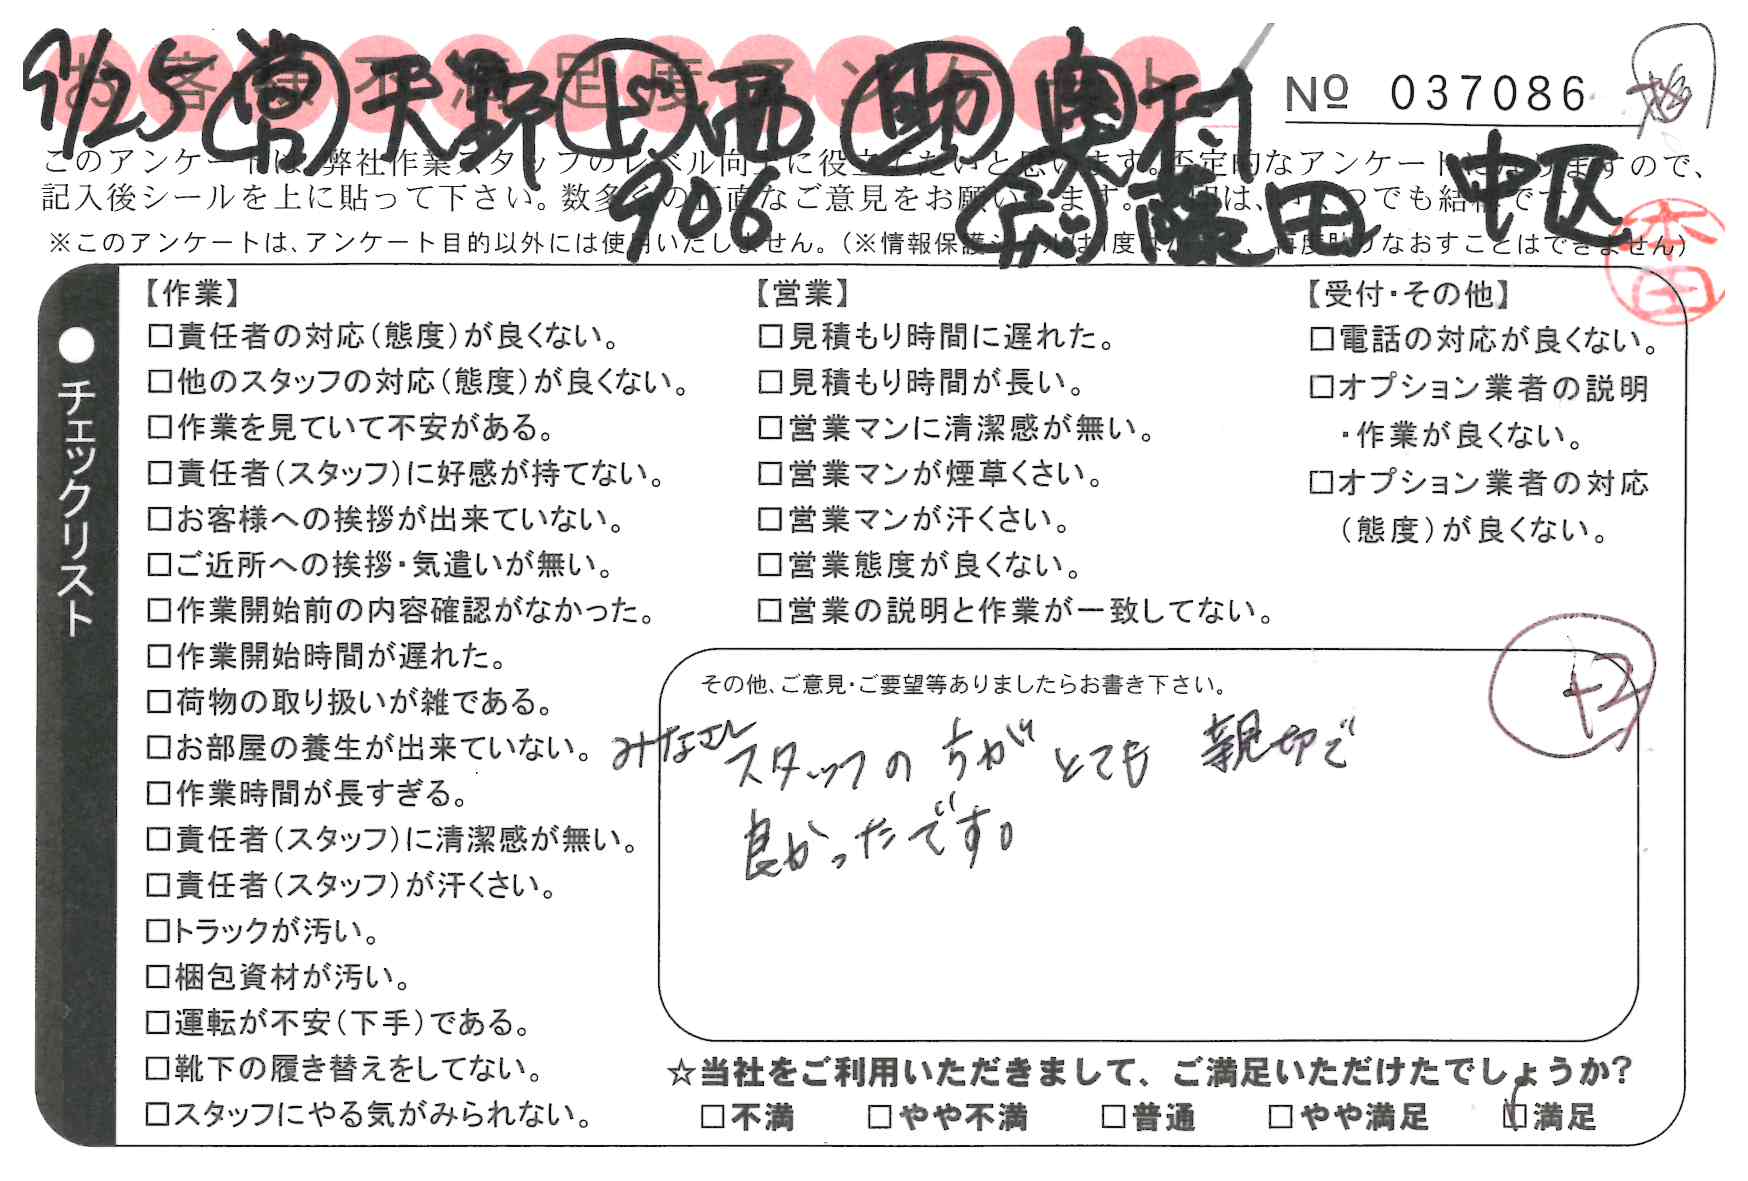 お客様不満足度アンケート
9/25 営 天野 上 西 助 奥村
Nº 037086
906 藤田 中区
このアンケートは、弊社作業スタッフのレベル向上に役立てたいと思います。否定的なアンケートになりますので、
記入後シールを上に貼って下さい。数多くの正直なご意見をお願いします。
※このアンケートは、アンケート目的以外には使用いたしません。(※情報保護シールは1度はがすと、再度貼りなおすことはできません)
本田
●チェックリスト
【作業】
□責任者の対応(態度)が良くない。
□他のスタッフの対応(態度)が良くない。
□作業を見ていて不安がある。
□責任者(スタッフ)に好感が持てない。
□お客様への挨拶が出来ていない。
□ご近所への挨拶・気遣いが無い。
□作業開始前の内容確認がなかった。
□作業開始時間が遅れた。
□荷物の取り扱いが雑である。
□お部屋の養生が出来ていない。
□作業時間が長すぎる。
□責任者(スタッフ)に清潔感が無い。
□責任者(スタッフ)が汗くさい。
□トラックが汚い。
□梱包資材が汚い。
□運転が不安(下手)である。
□靴下の履き替えをしてない。
□スタッフにやる気がみられない。
【営業】
□見積もり時間に遅れた。
□見積もり時間が長い。
□営業マンに清潔感が無い。
□営業マンが煙草くさい。
□営業マンが汗くさい。
□営業態度が良くない。
□営業の説明と作業が一致してない。
【受付・その他】
□電話の対応が良くない。
□オプション業者の説明
・作業が良くない。
□オプション業者の対応
(態度)が良くない。
その他、ご意見・ご要望等ありましたらお書き下さい。
+2
みなさん スタッフの方が とても 親切で
良かったです。
☆当社をご利用いただきまして、ご満足いただけたでしょうか?
□不満 □やや不満 □普通 □やや満足 □満足